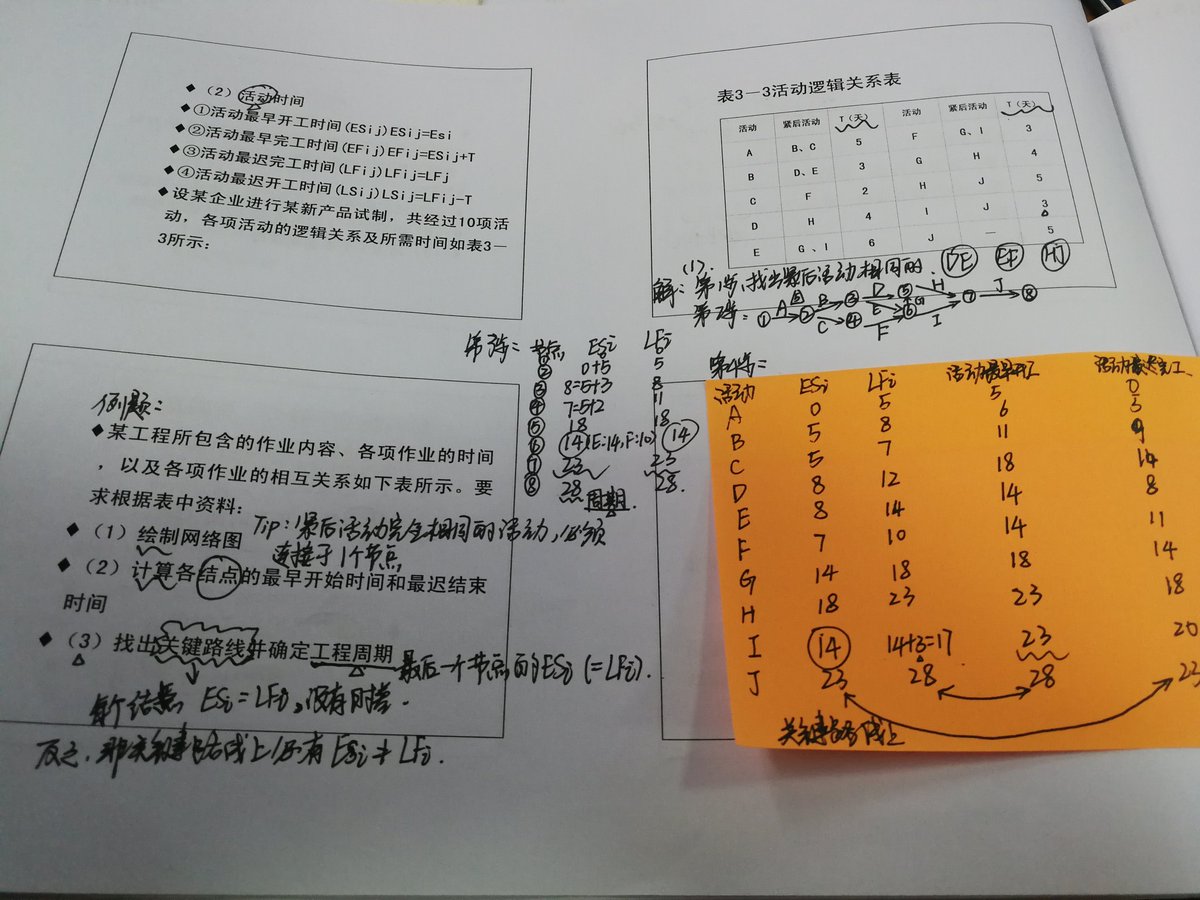 ◆（2）活动时间
◆①活动最早开工时间(ESij)ESij=Esi
◆②活动最早完工时间(EFij)EFij=ESij+T
◆③活动最迟完工时间(LFij)LFij=LFj
◆④活动最迟开工时间(LSij)LSij=LFij-T
◆设某企业进行某新产品试制，共经过10项活
动，各项活动的逻辑关系及所需时间如表3—
3所示：
表3—3活动逻辑关系表
活动 紧后活动 T（天） 活动 紧后活动 T（天）
A B、C 5 F G、I 3
B D、E 3 G H 4
C F 2 H J 5
D H 4 I J 3
E G、I 6 J — 5
解：(1)．第1步，找出紧后活动相同的．DE EF HI
第2步：① A ② B ③ D ⑤ H ⑦ J ⑧
C ④ E ⑥ G
F I
第3步： 节点 ESi LFi
② 0+5 5
③ 8=5+3 8
④ 7=5+2 11
⑤ 18 18
⑥ 14(E:14,F:10) 14
⑦ 23 23
⑧ 28 28.
周期．
例题：
◆某工程所包含的作业内容、各项作业的时间
，以及各项作业的相互关系如下表所示。要
求根据表中资料：
◆（1）绘制网络图
Tip：紧后活动完全相同的活动，必须
连接于1个节点
◆（2）计算各结点的最早开始时间和最迟结束
时间
◆（3）找出关键路线并确定工程周期
最后一个节点的ESi (=LFi).
每个结点 ESi=LFi，没有时差．
反之，非关键路线上必有ESi≠LFi．
第4步：
活动 ESi LFi
A 0 5 5 0
B 5 8 6 3
C 5 7 11 9
D 8 12 18 14
E 8 14 14 8
F 7 10 14 11
G 14 18 18 14
H 18 23 23 18
I 14 14+3=17 23 20
J 23 28 28 23
关键路线上